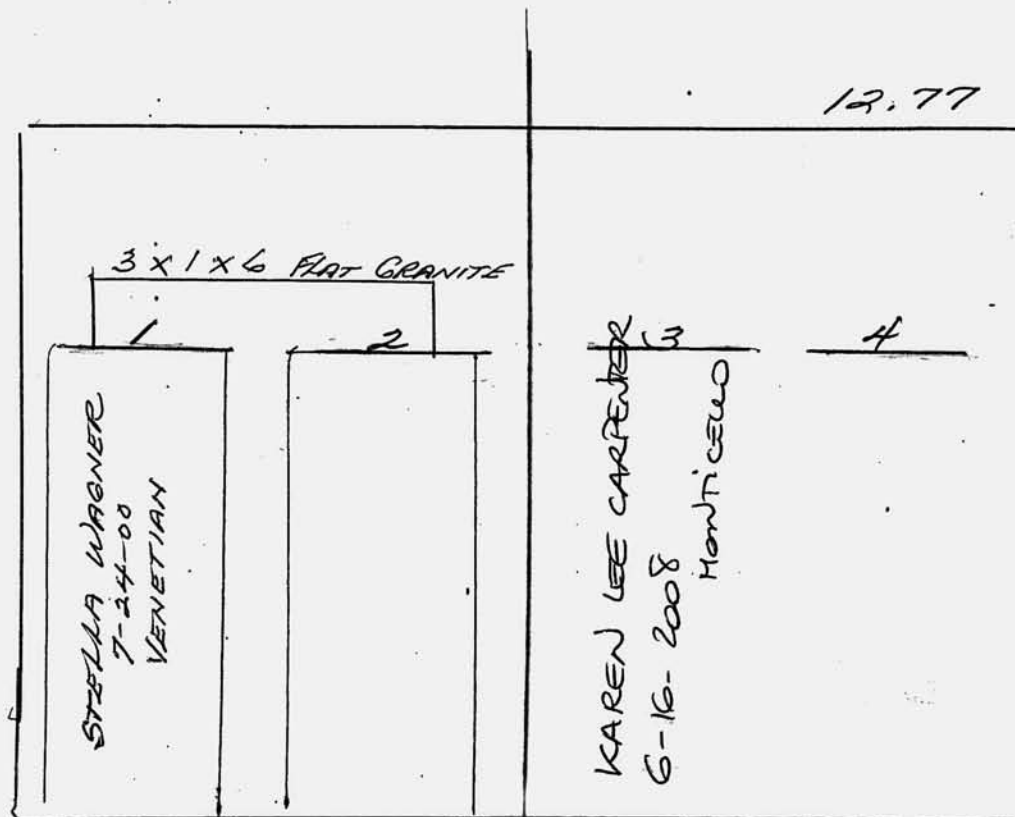 12.77
3 X 1 X 6 FLAT GRANITE
1
2
3
4
STELLA WAGNER
7-24-00
VENETIAN
KAREN LEE CARPENTER
6-16-2008
MONTICELLO